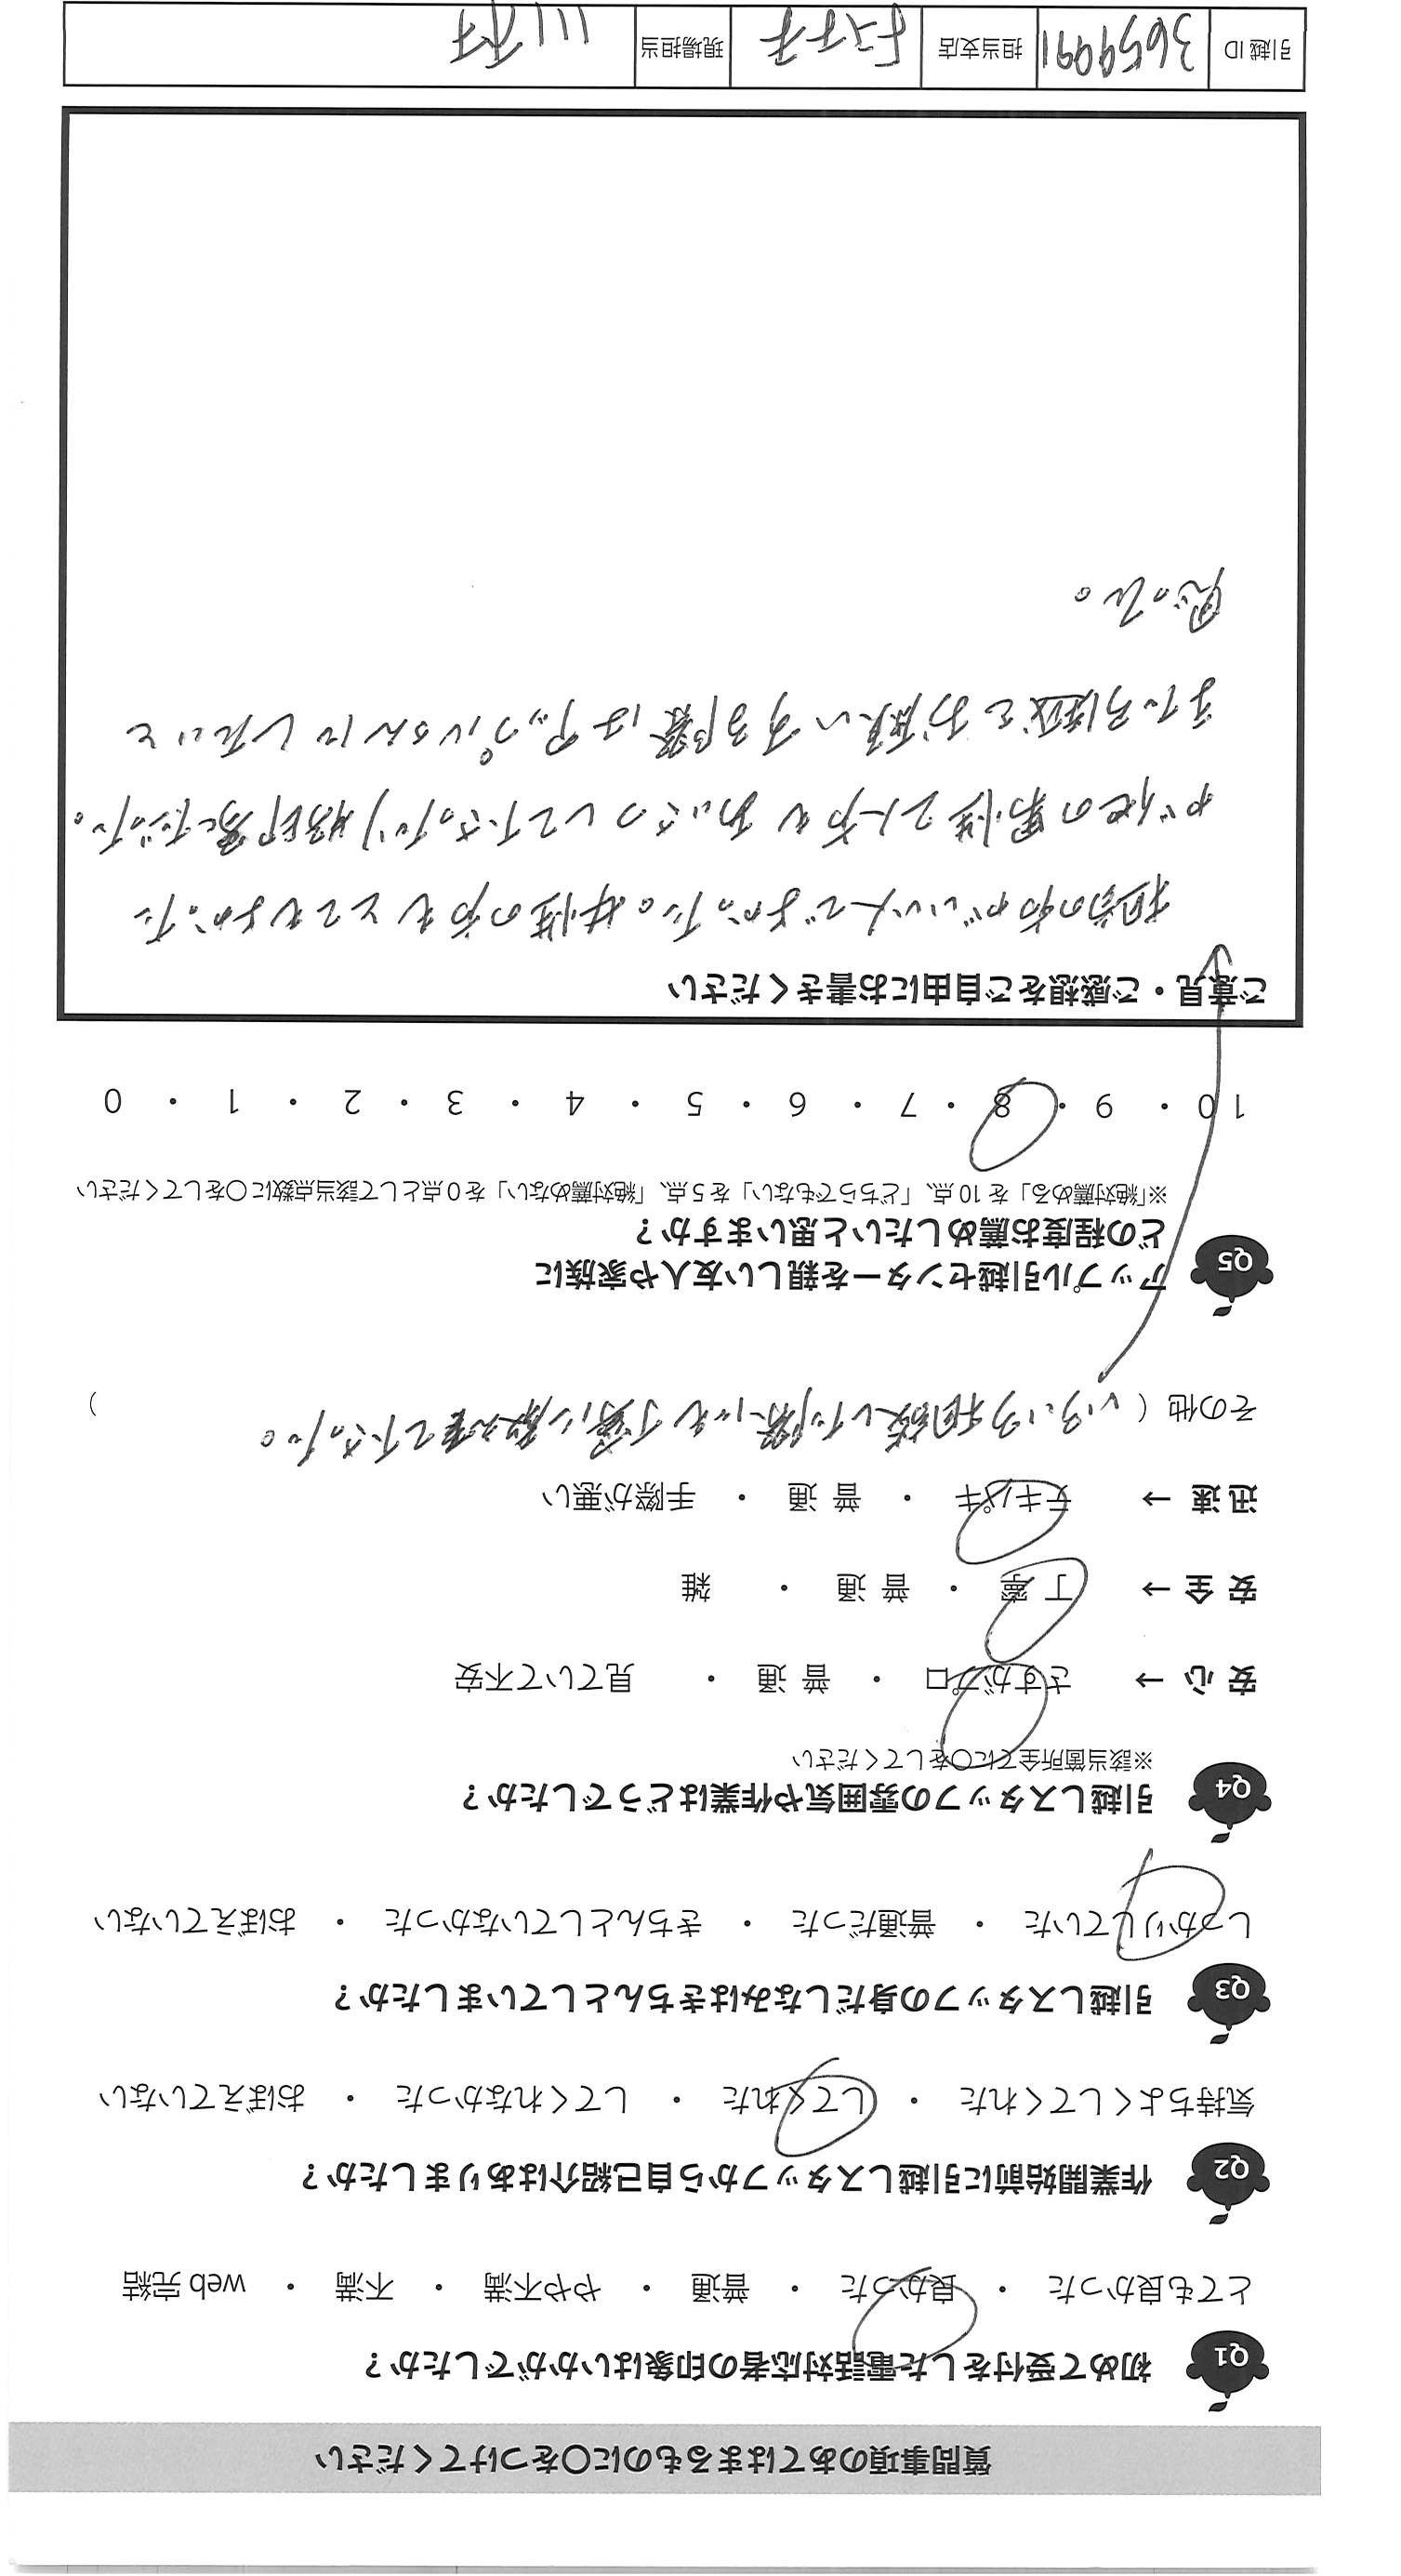 質問事項のあてはまるものに○をつけてください
Q1 初めて受付をした電話対応者の印象はいかがでしたか？
とても良かった ・ 良かった ・ 普通 ・ やや不満 ・ 不満 ・ web 完結
Q2 作業開始前に引越しスタッフから自己紹介はありましたか？
気持ちよくしてくれた ・ してくれた ・ してくれなかった ・ おぼえていない
Q3 引越しスタッフの身だしなみはきちんとしていましたか？
しっかりしていた ・ 普通だった ・ きちんとしていなかった ・ おぼえていない
Q4 引越しスタッフの雰囲気や作業はどうでしたか？
※該当箇所全てに○をしてください
安 心 → さすがプロ ・ 普 通 ・ 見ていて不安
安 全 → 丁 寧 ・ 普 通 ・ 雑
迅 速 → テキパキ ・ 普 通 ・ 手際が悪い
その他（いろいろ相談した際にも丁寧に教えて下さった。）
Q5 アップル引越センターを親しい友人や家族に
どの程度お薦めしたいと思いますか？
※「絶対薦める」を 10 点、「どちらでもない」を 5 点、「絶対薦めない」を 0 点として該当点数に○をしてください
10 ・ 9 ・ 8 ・ 7 ・ 6 ・ 5 ・ 4 ・ 3 ・ 2 ・ 1 ・ 0
ご意見・ご感想をご自由にお書きください
担当の方がいい人でよかった。女性の方もとてもよかった
や他の男性2人方もあいさつして下さったり好印象だった。
また引越をお願いする際はアップルさんにしたいと
思った。
引越 ID 3659991 担当支店 現場担当 川村